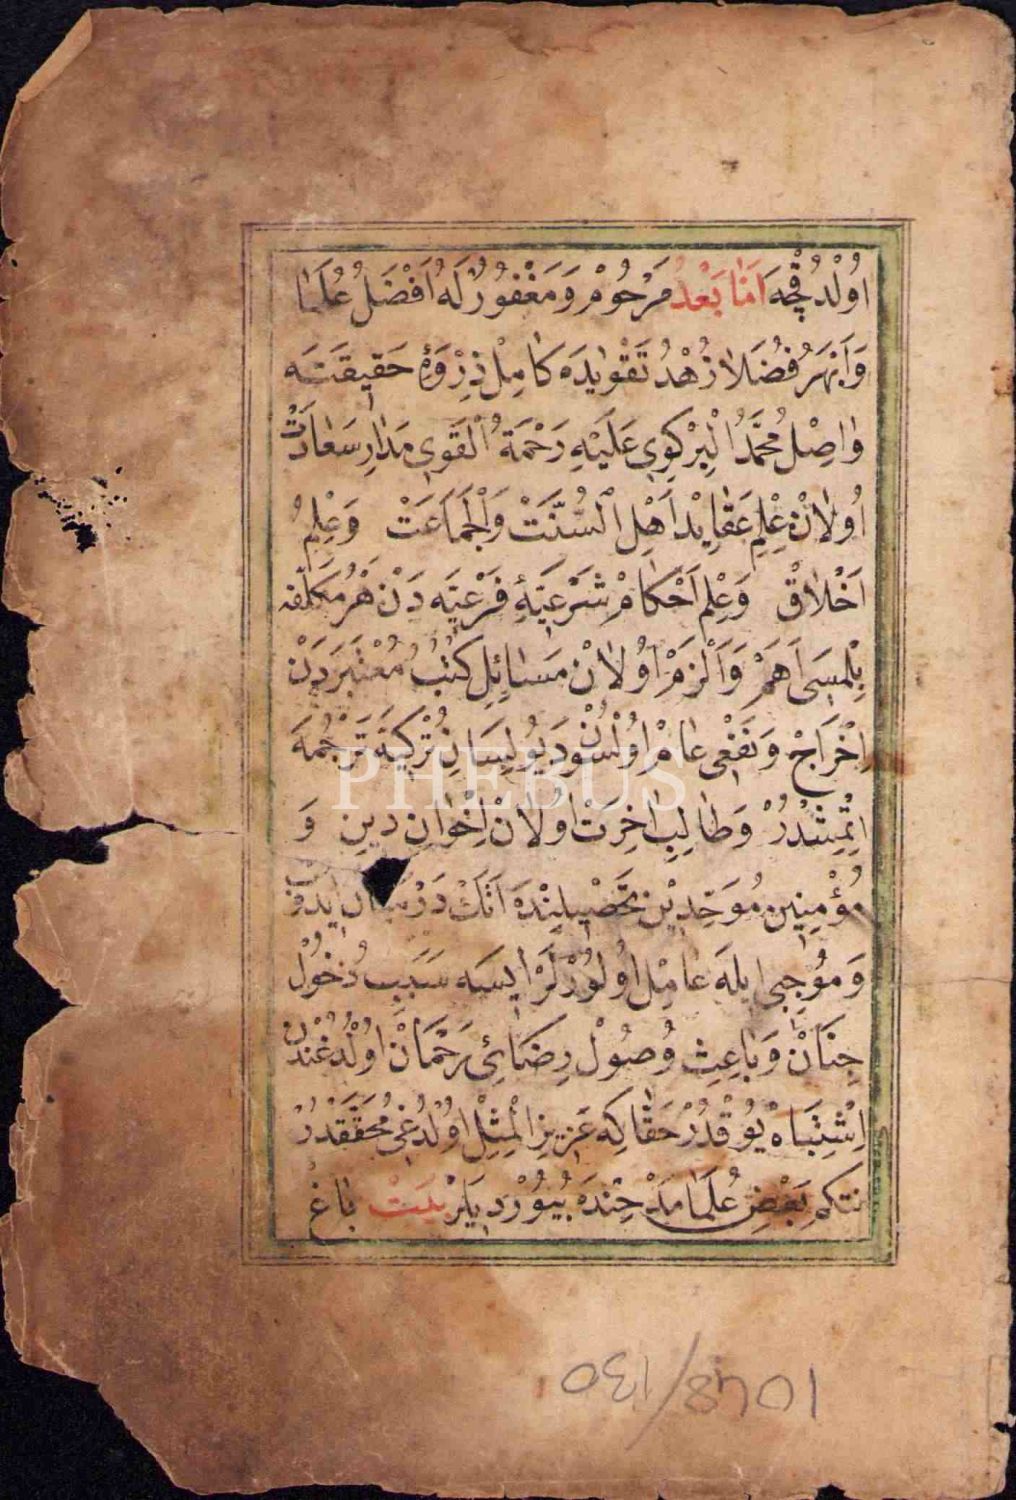 اُولْدُقْجَه اَمَّا بَعْدُ مَرْحُومْ وَمَغْفُورٌ لَهُ اَفْضَلُ عُلَمَا
وَاَبْهَرُ فُضَلَا زُهْدُ تَقْوٰايدَه كَامِلْ ذِرْوَهٔ حَقِيقَتَه
وٰاصِلْ مُحَمَّدُ الْبِرْكَوِى عَلَيْهِ رَحْمَةُ الْقَوِى مَدَارِ سَعَادَتْ
اُولَانْ عِلْمِ عَقَايِدْ اَهْلِ السُّنَّتْ وَالْجَمَاعَتْ وَعِلْمُ
اَخْلَاقْ وَعِلْمِ اَحْكَامْ شَرْعِيَّهٔ فَرْعِيَّه دَنْ هَرْ مُكَلَّفَه
بِلْمِسَى اَهَمْ وَاَلْزَمْ اُولَانْ مَسَائِلِ كُتُبُ مُعْتَبَرَدَنْ
اِخْرَاجْ وَنَفْعِى عَامْ اُولْسُونْ دَيُو لِسَانِ تُرْكِيَه تَرْجُمَه
اِتْمِشْدُرْ وَطَالِبِ اٰخِرَتْ اُولَانْ اِخْوَانِ دِينِ وَ
مُؤْمِنِينِ مُوَحِّدِينْ تَحْصِيلِنْدَه اَنَكْ ايدُوبْ
وَمُوجِبِى ايلَه عَامِلْ اُولُورْلَرْ ايسَه سَبَبِ دُخُولْ
جِنَانْ وَبَاعِثِ وُصُولْ رِضَائِ رَحْمَانْ اُولْدُغُنْدَنْ
اِشْتِبَاهْ يُوقْدُرْ حَقَّا كِه عَزِيزُ الْمِثْلِ اُولْدُغِى مُحَقَّقْدُرْ
نتكم بَعْضِ عُلَمَا مَدْحِنْدَه بُيُورْديلَرْ بَيْتْ بَاغِ
PHEBUS
1048/130